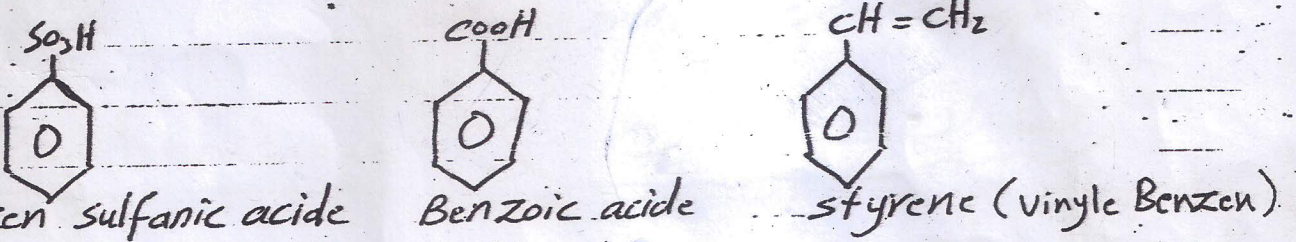 SO₃H COOH CH = CH₂
en sulfanic acide Benzoic acide styrene (vinyle Benzen)